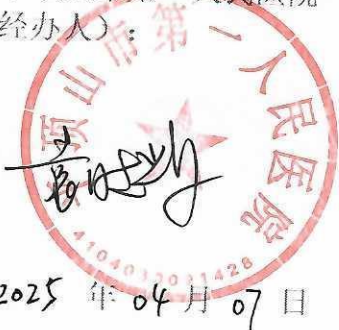 人民医院
经办人）：
平顶山市第一人民医院
4104032031428
2025 年 04 月 07 日